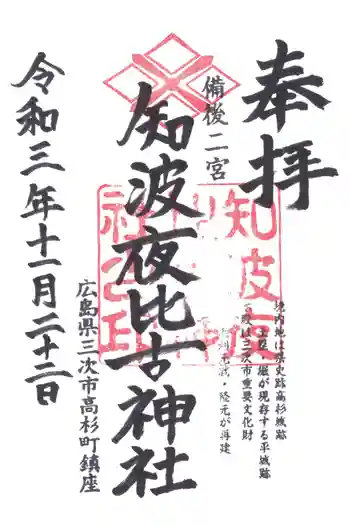 奉拝
境内地は県史跡高杉城跡
土塁・堀が現存する平城跡
本殿は三次市重要文化財
毛利元就・隆元が再建
備後二宮
知波夜比古神社
広島県三次市高杉町鎮座
令和三年十一月二十二日